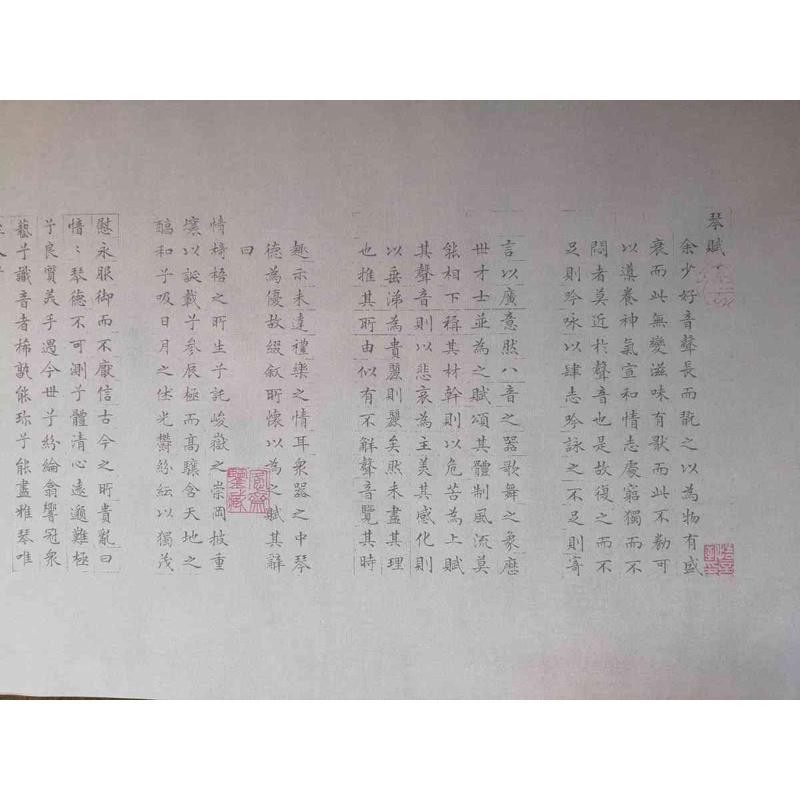 琴賦
余少好音聲長而翫之以為物有盛
衰而此無變滋味有猒而此不勌可
以導養神氣宣和情志處窮獨而不
悶者莫近於聲音也是故復之而不
足則吟咏以肆志吟詠之不足則寄
言以廣意然八音之器歌舞之象歷
世才士並為之賦頌其體制風流莫
能相下稱其材幹則以危苦為上賦
其聲音則以悲哀為主美其感化則
以垂涕為貴麗則麗矣然未盡其理
也推其所由似有不解聲音覽其時
趣示未達禮樂之情耳衆器之中琴
德為優故綴叙所懷以為之賦其辭
曰
情椅梧之所生子託峻嶽之崇岡披重
壤以誕載子參辰極而高驤含天地之
醕和子吸日月之休光欝紛紜以獨茂
慰永服御而不厭信古今之所貴亂曰
愔〻琴德不可測子體清心遠邈難極
子良質美手遇今世子紛綸翕響冠衆
藝子識音者稀孰能珎子能盡雅琴唯